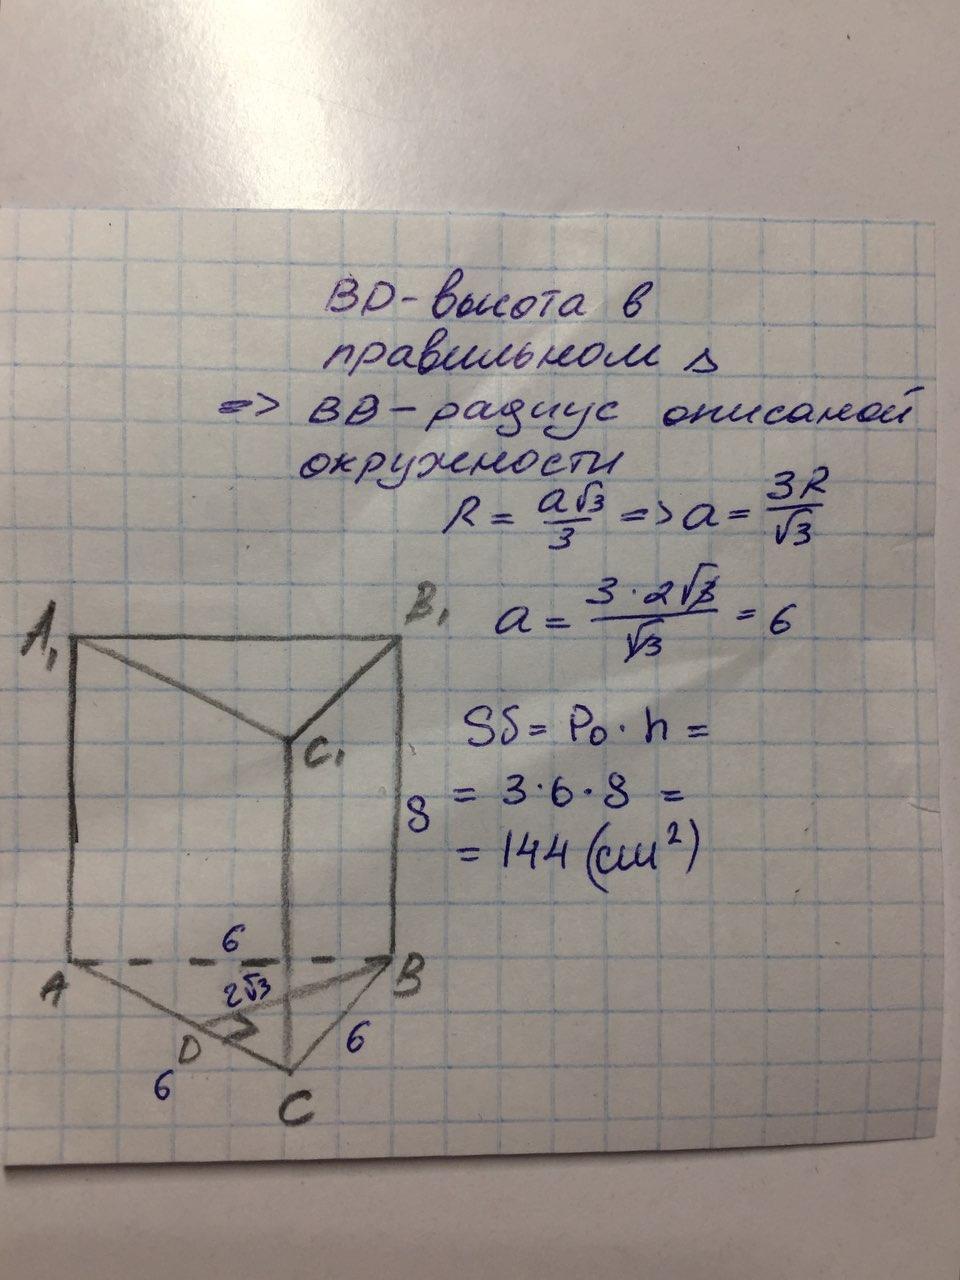 BD - высота в
правильном △
=> BB - радиус описаной
окружности
R = a√3/3 => a = 3R/√3
a = 3·2√3/√3 = 6
Sб = Pо · h =
= 3·6·8 =
= 144 (см²)
A₁
B₁
C₁
8
6
A
B
2√3
D
6
6
C